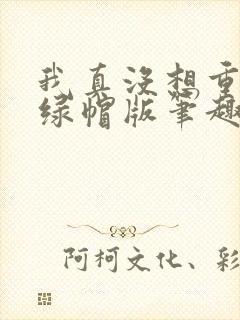 我真没想重
绿帽版笔趣
阿柯文化、彩